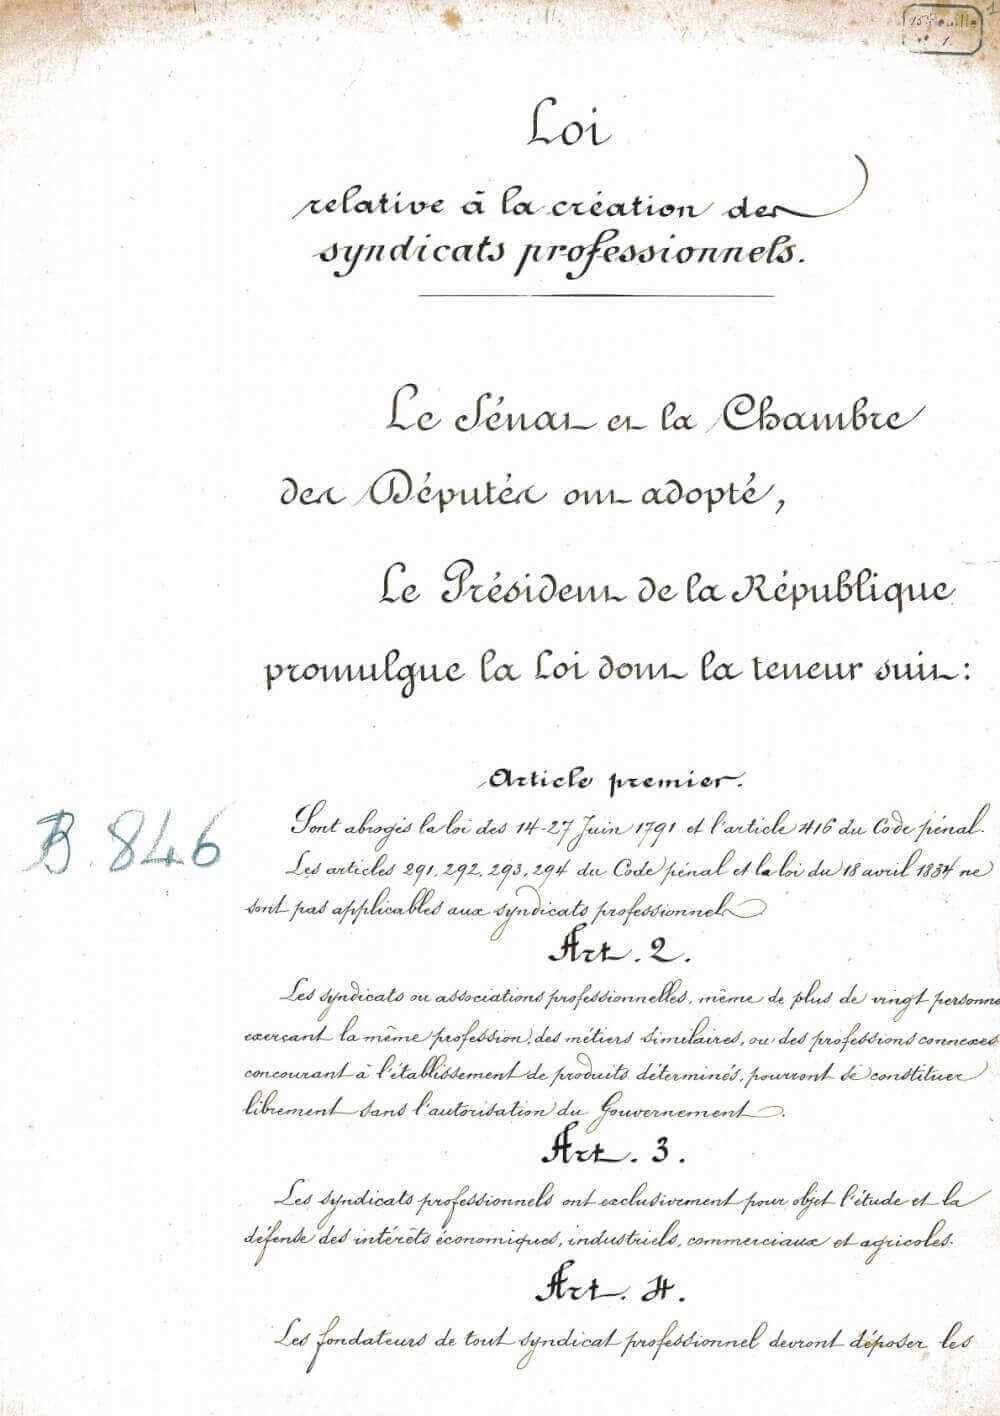 1
Loi
relative à la création des
syndicats professionnels.
Le Sénat et la Chambre
des Députés ont adopté,
Le Président de la République
promulgue la Loi dont la teneur suit :
Article premier.
Sont abrogés la loi des 14-27 Juin 1791 et l'article 416 du Code pénal.
Les articles 291, 292, 293, 294 du Code pénal et la loi du 18 avril 1834 ne
sont pas applicables aux syndicats professionnels.
B. 846
Art. 2.
Les syndicats ou associations professionnelles, même de plus de vingt personnes
exerçant la même profession, des métiers similaires, ou des professions connexes
concourant à l'établissement de produits déterminés, pourront se constituer
librement sans l'autorisation du Gouvernement.
Art. 3.
Les syndicats professionnels ont exclusivement pour objet l'étude et la
défense des intérêts économiques, industriels, commerciaux et agricoles.
Art. 4.
Les fondateurs de tout syndicat professionnel devront déposer les